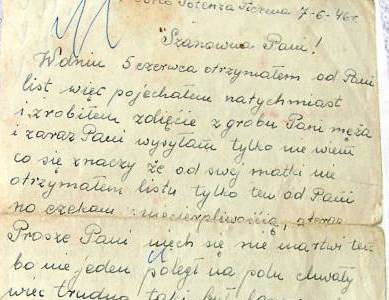 Potenza Picena 7-6-46r.
"Szanowna Pani!
W dniu 5 czerwca otrzymałem od Pani
list więc pojechałem natychmiast
i zrobiłem zdięcie z grobu Pani męża
i zaraz Pani wysyłam tylko nie wiem
co się znaczy że od swej matki nie
otrzymałem listu tylko ten od Pani
no czekam z niecierpliwością, a teraz
Proszę Pani niech się nie martwi tem
bo nie jeden poległ na polu chwały
więc trudno taki był